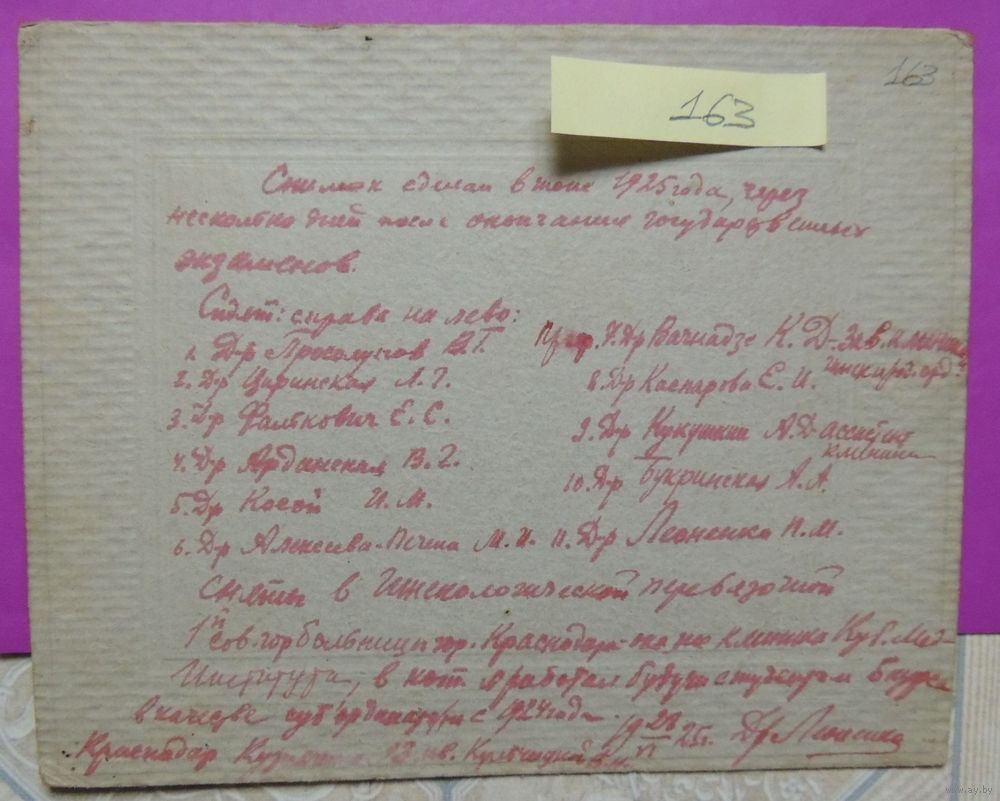 163
163
Снимок сделан в июне 1925 года, через
несколько дней после окончания государственных
экзаменов.
Сидят: справа на лево:
1. Д-р В.Г.
2. Д-р Л. Г.
3. Д-р Фалькович Е. С.
4. Д-р Арданская В. Г.
5. Др Косой И. М.
6. Д-р Алексеева- М. И.
Проф. 7. Др Вачнадзе К. Д- Зав. клиники
Гинекол.
8. Др Каспарова Е. И.
9. Др Кукушкин А. Д ассистент
клиники
10. Др Букринская А. А.
11. Д-р Леоненко П. М.
Сняты в Гинекологической перевязочной
1й Сов. гор больницы гор. Краснодара- она же клиника Куб. Мед
Института, в кот я работал будучи студентом
в качестве с 1924 года.
Краснодар кв.
19 28/VI 25 г. Др Леоненко
www.ay.by